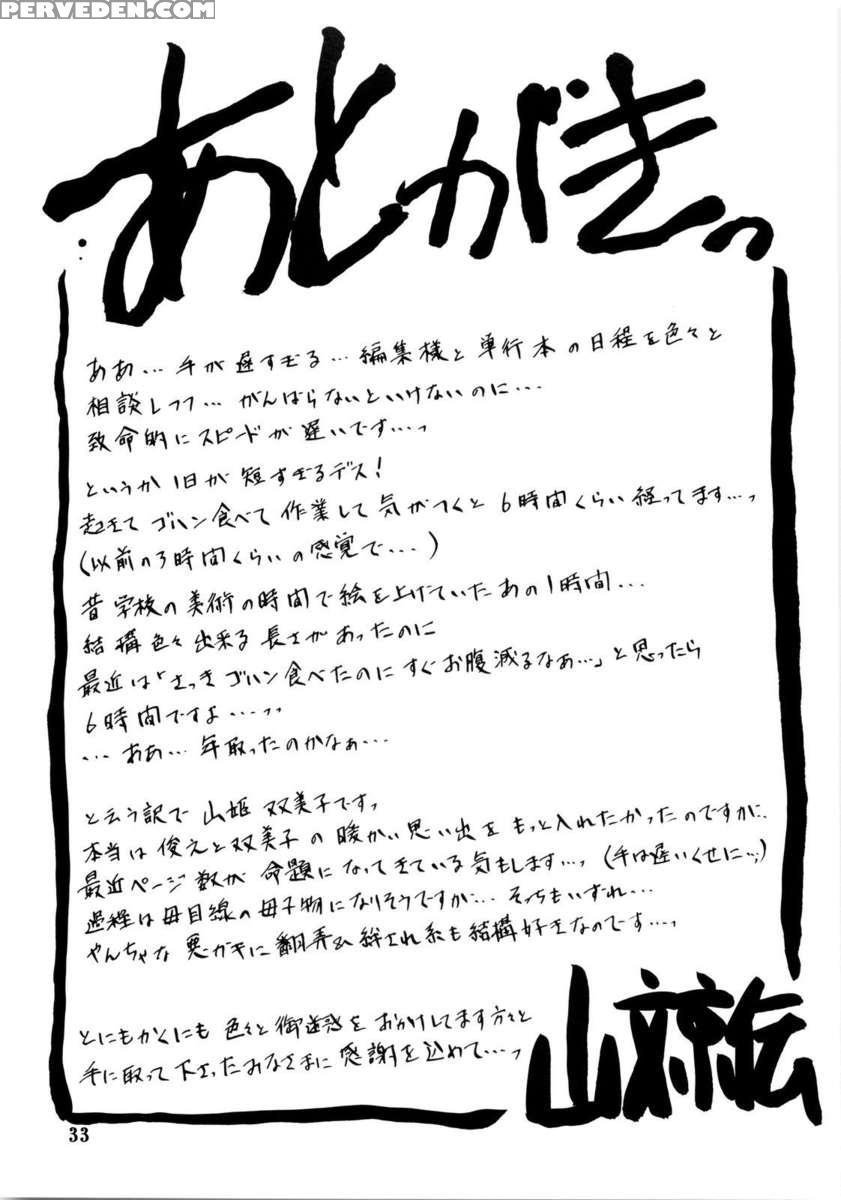 PERVEDEN.COM
あとがきっ
ああ…手が遅すぎる…編集様と単行本の日程を色々と
相談しつつ…がんばらないといけないのに…
致命的にスピードが遅いです…っ
というか1日が短すぎるデス!
起きてゴハン食べて作業して気がつくと6時間くらい経ってます…っ
(以前の3時間くらいの感覚で…)
昔学校の美術の時間で絵を上げていたあの1時間…
結構色々出来る長さがあったのに
最近は「さっきゴハン食べたのにすぐお腹減るなぁ…」と思ったら
6時間ですよ…っっ
…ああ…年取ったのかなぁ…
と云う訳で山姫 双美子ですっ
本当は俊之と双美子の暖かい思い出をもっと入れたかったのですが…
最近ページ数が命題になってきている気もします…っ(手は遅いくせに…;)
過程は母目線の母子物になりそうですが…そっちもいずれ…
やんちゃな悪ガキに翻弄&絆され系も結構好きなのです…っ
とにもかくにも色々と御迷惑をおかけしてます方々と
手に取って下さったみなさまに感謝を込めて…っ
33